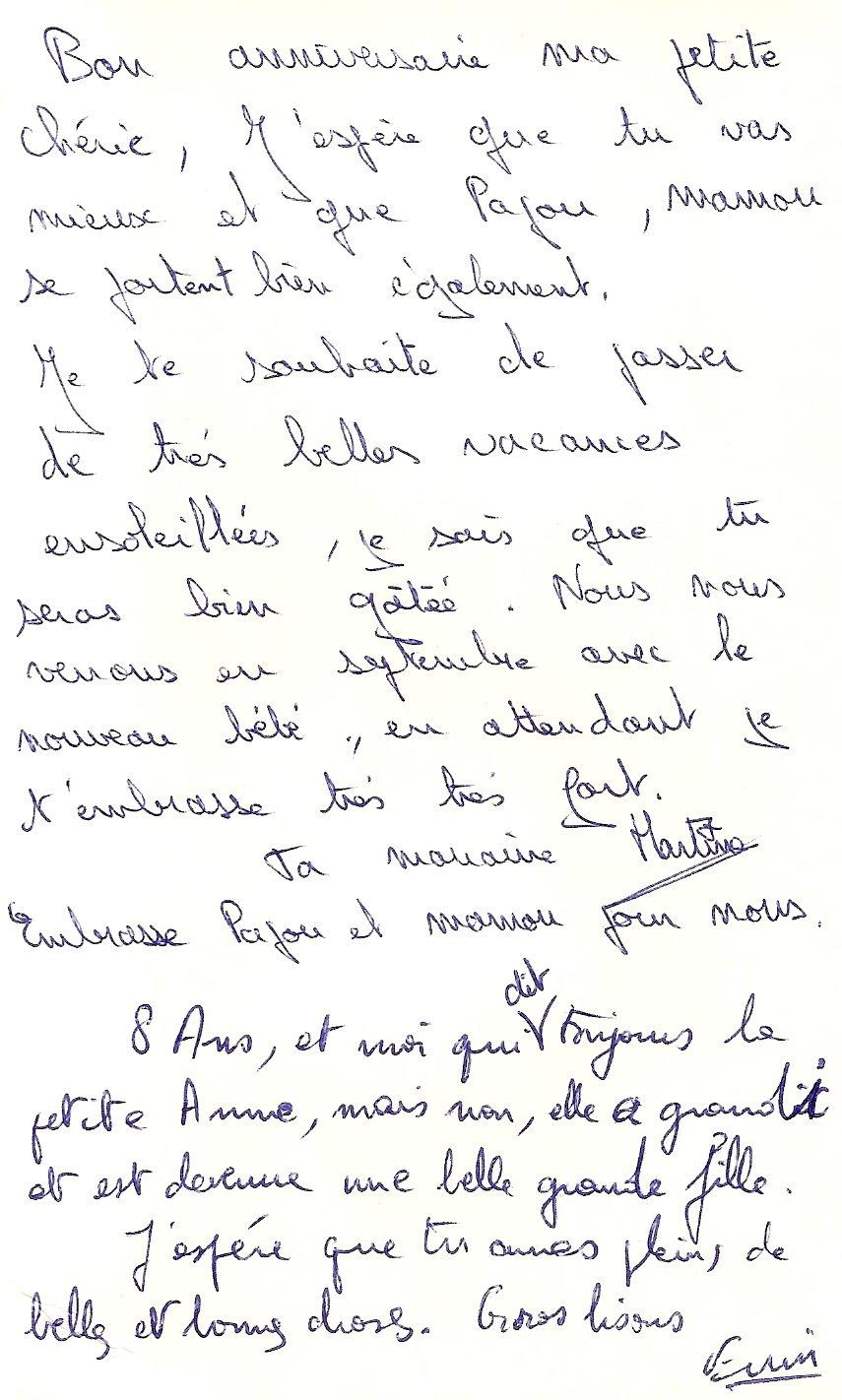 Bon anniversaire ma petite
chérie, J'espère que tu vas
mieux et que Pajou, mamou
se portent bien également.
Je te souhaite de passer
de très belles vacances
ensoleillées, je sais que tu
seras bien gâtée. Nous nous
venons en septembre avec le
nouveau bébé, en attendant je
t'embrasse très très fort.
Ta marraine Martine
Embrasse Pajou et mamou pour nous.
dit
8 Ans, et moi qui toujours la
petite Anne, mais non, elle a grandit
et est devenue une belle grande fille.
J'espére que tu auras pleins de
belles et bonnes choses. Gros bisous